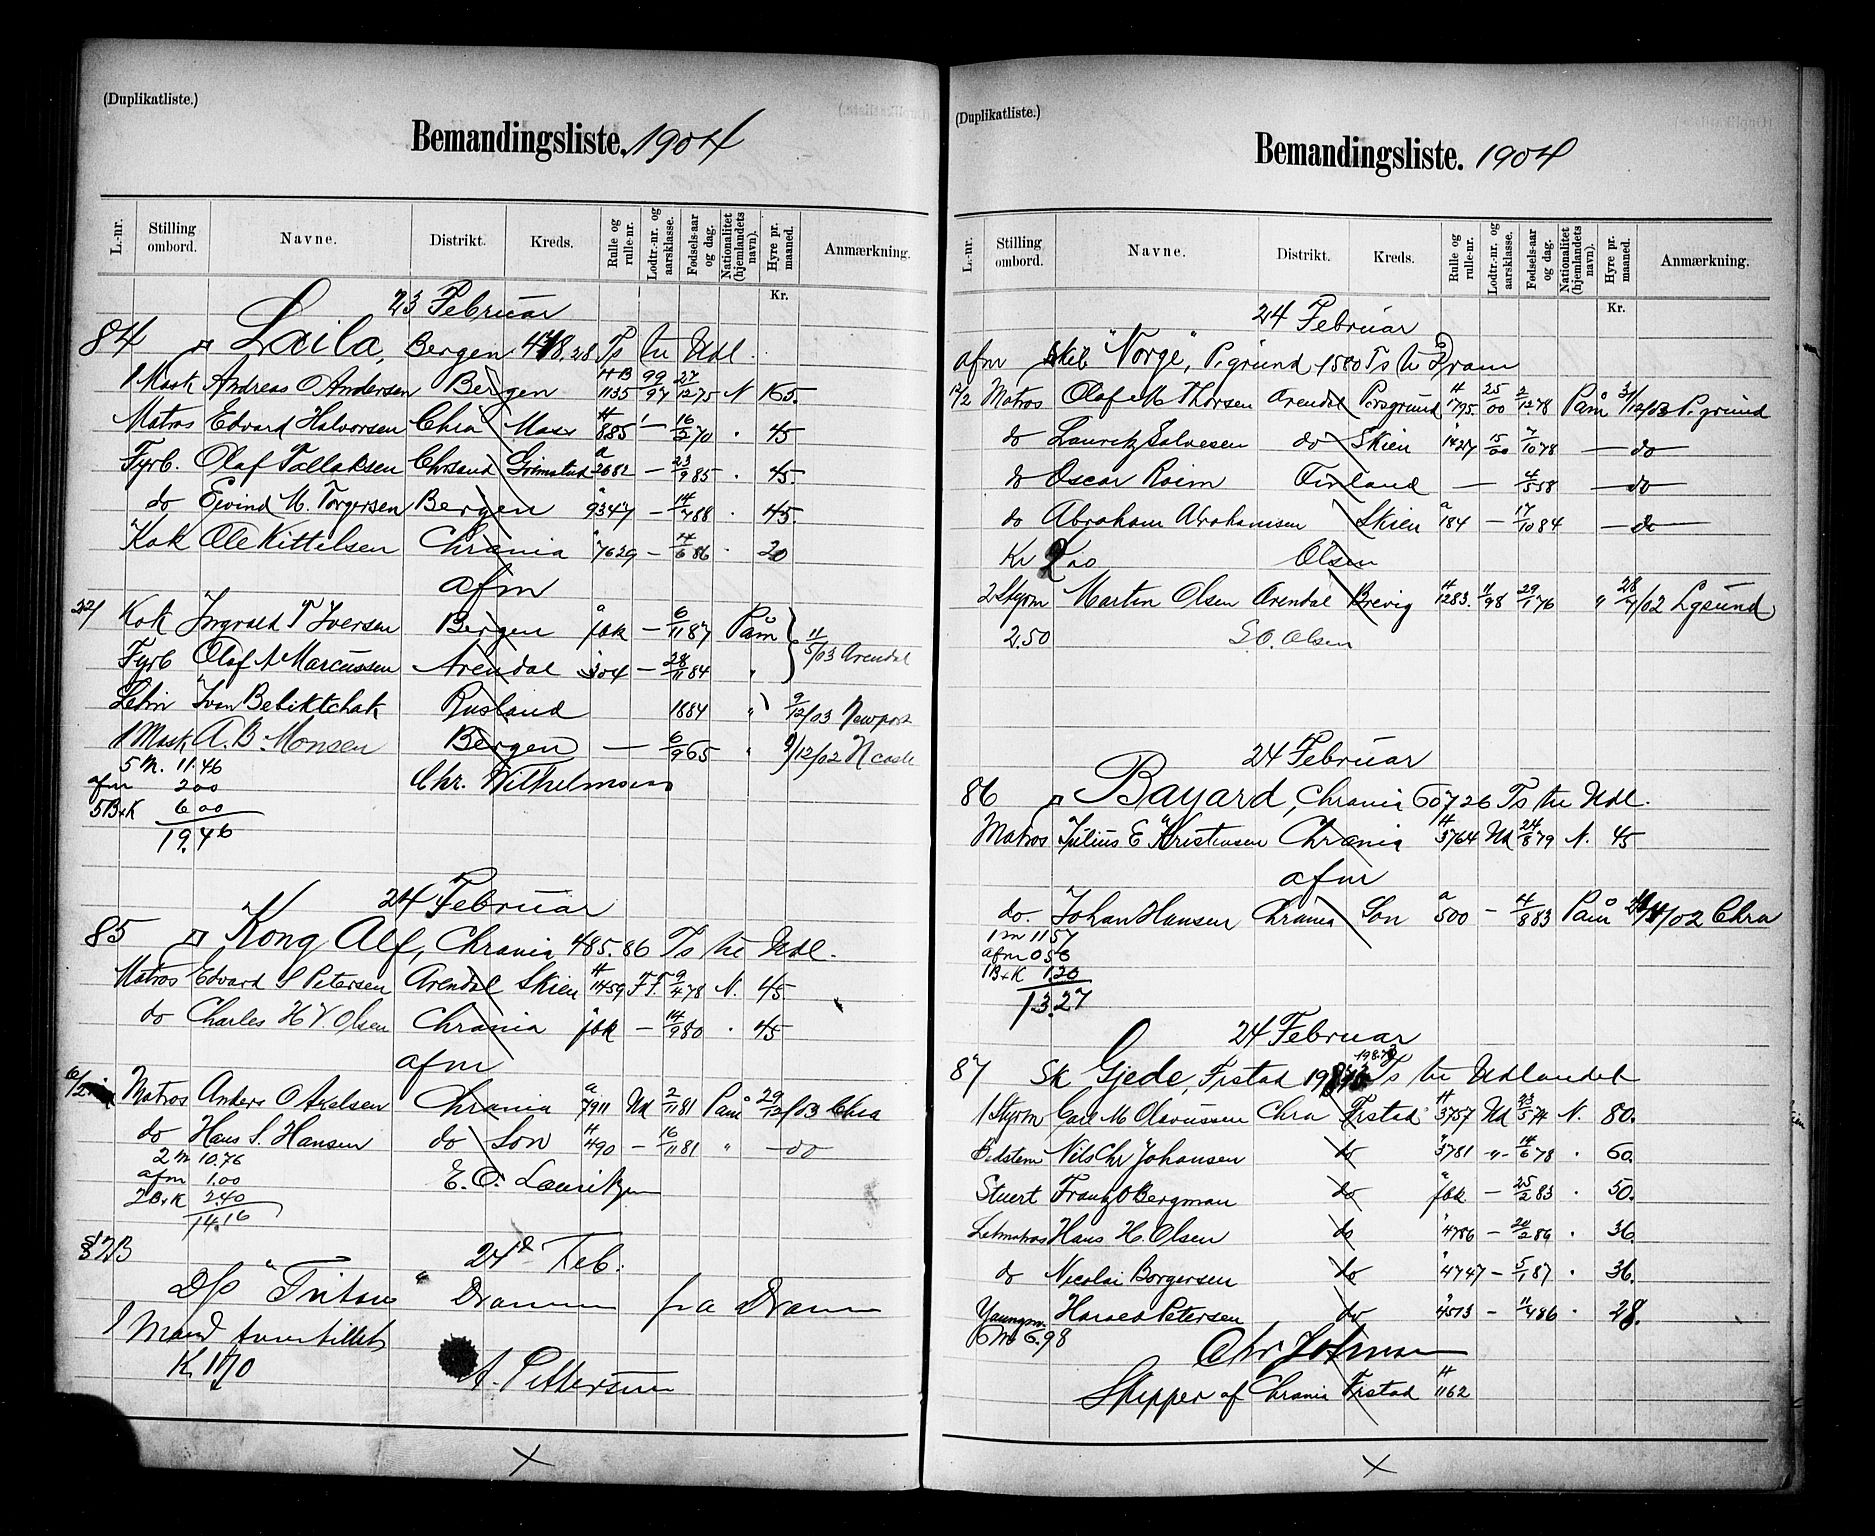 (Duplikatliste.)
Bemandingsliste. 1904
L.-nr. Stilling ombord. Navne. Distrikt. Kreds. Rulle og rulle-nr. Lodtr.-nr. og aarsklasse. Fødsels-aar og dag. Nationalitet (hjemlandets navn). Hyre pr. maaned. Anmærkning.
Kr.
23 Februar
84 Laila, Bergen 478.28 Ts til Udl.
1 Mask Andreas O Andersen Bergen H B 1135 99/97 27/12 75 N 165.
Matros Edvard Halvorsen Chra Moss H 885 — 16/2 70 . 45
Fyrb. Olaf Tallaksen Chrsand Grimstad a 2682 — 23/9 85 . 45.
do Eivind M. Torgersen Bergen " 9347 — 14/7 88 . 45.
Kok Ole Kittelsen Chrania " 7629 — 14/6 86 . 20
afm
22/ Kok Ingvald T Iversen Bergen a fbk — 6/11 87 Påm } 11/5/03 Arendal
Fyrb Olaf A Marcussen Arendal 304 — 28/11 84 "
Letm Ivan Beliktchak Rusland 1884 " 9/12/03 Newport
1 Mask. A. B. Monsen Bergen — 6/9 65 " 9/12/02 Ncastle
5 M. 11.46
afm 200
5 B+K 6 00
19.46
Chr. Wilhelmsen
24 Februar
85 Kong Alf, Chrania 485.86 Ts til Udl.
Matros Edvard S Petersen Arendal Skien H 1459 FF 9/4 78 N. 45
do Charles H V. Olsen Chrania " fbk — 14/9 80 . 45
afm
Matros Anders O Axelsen Chrania a 7911 Ud 2/11 81 Påm 29/12/03 Chra
do Hans S. Hansen do Son H 490 — 16/11 81 " — do
2 M 10.76
afm 1.00
2 B+K 2.40
14.16
E. O. Lauritzen
87B 24d Feb.
D/S "Triton" Drammen fra Drammen
1 Mand
K. 1.70
A. Pettersen
(Duplikatliste.)
Bemandingsliste. 1904
L.-nr. Stilling ombord. Navne. Distrikt. Kreds. Rulle og rulle-nr. Lodtr.-nr. og aarsklasse. Fødsels-aar og dag. Nationalitet (hjemlandets navn). Hyre pr. maaned. Anmærkning.
Kr.
24 Februar
afm Skib "Norge", P.grund 1580 Ts til Dram
12/2 Matros Olaf M Thorsen Arendal Porsgrund H 1795. 25/00 2/12 78 Påm 31/12/03 P.grund
do Lauritz Salvesen do Skien " 1427 15/00 7/10 78 — do —
do Oscar Roim Finland — 4/5 58 — do —
do Abraham Abrahamsen Skien a 184 — 17/10 84 — do —
Kr 2 00 Olsen
2 Styrm Martin Olsen Arendal Brevig H 1283. 11/98 29/1 76 " 28/7/02 Lgsund
2.50 S. O. Olsen
24 Februar
86 Bayard, Chrania 607 26 Ts til Udl.
Matros Julius E Kristensen Chrania H 3764 Ud 24/8 79 N. 45
afm
do. Johan Hansen Chrania Son a 500 — 4/8 83 Påm /02 Chra
1 m 11 57
afm 0 50
1 B+K 1.20
13.27
24 Februar
198.73
87 Sk Gjede, Frstad Ts til Udlandet
1 Styrm Carl M Olavussen Chra Frstad H 3757 Ud 23/5 74 N. 80.
Bdstem Nils Chr Johansen do " 3781 " 14/6 78 . 60.
Stuert Franz O Bergman do a fbk — 25/2 83 . 50.
Letmatros Hans H. Olsen do " 4786 — 20/2 86 . 36
do Nicolai Borgersen do " 4747 — 5/1 87 . 36.
Youngm. Harald Petersen do " 4513 — 11/4 86 . 28.
6 M 6.98
Chr Johnsen
Skipper af Chrania Frstad H 1162